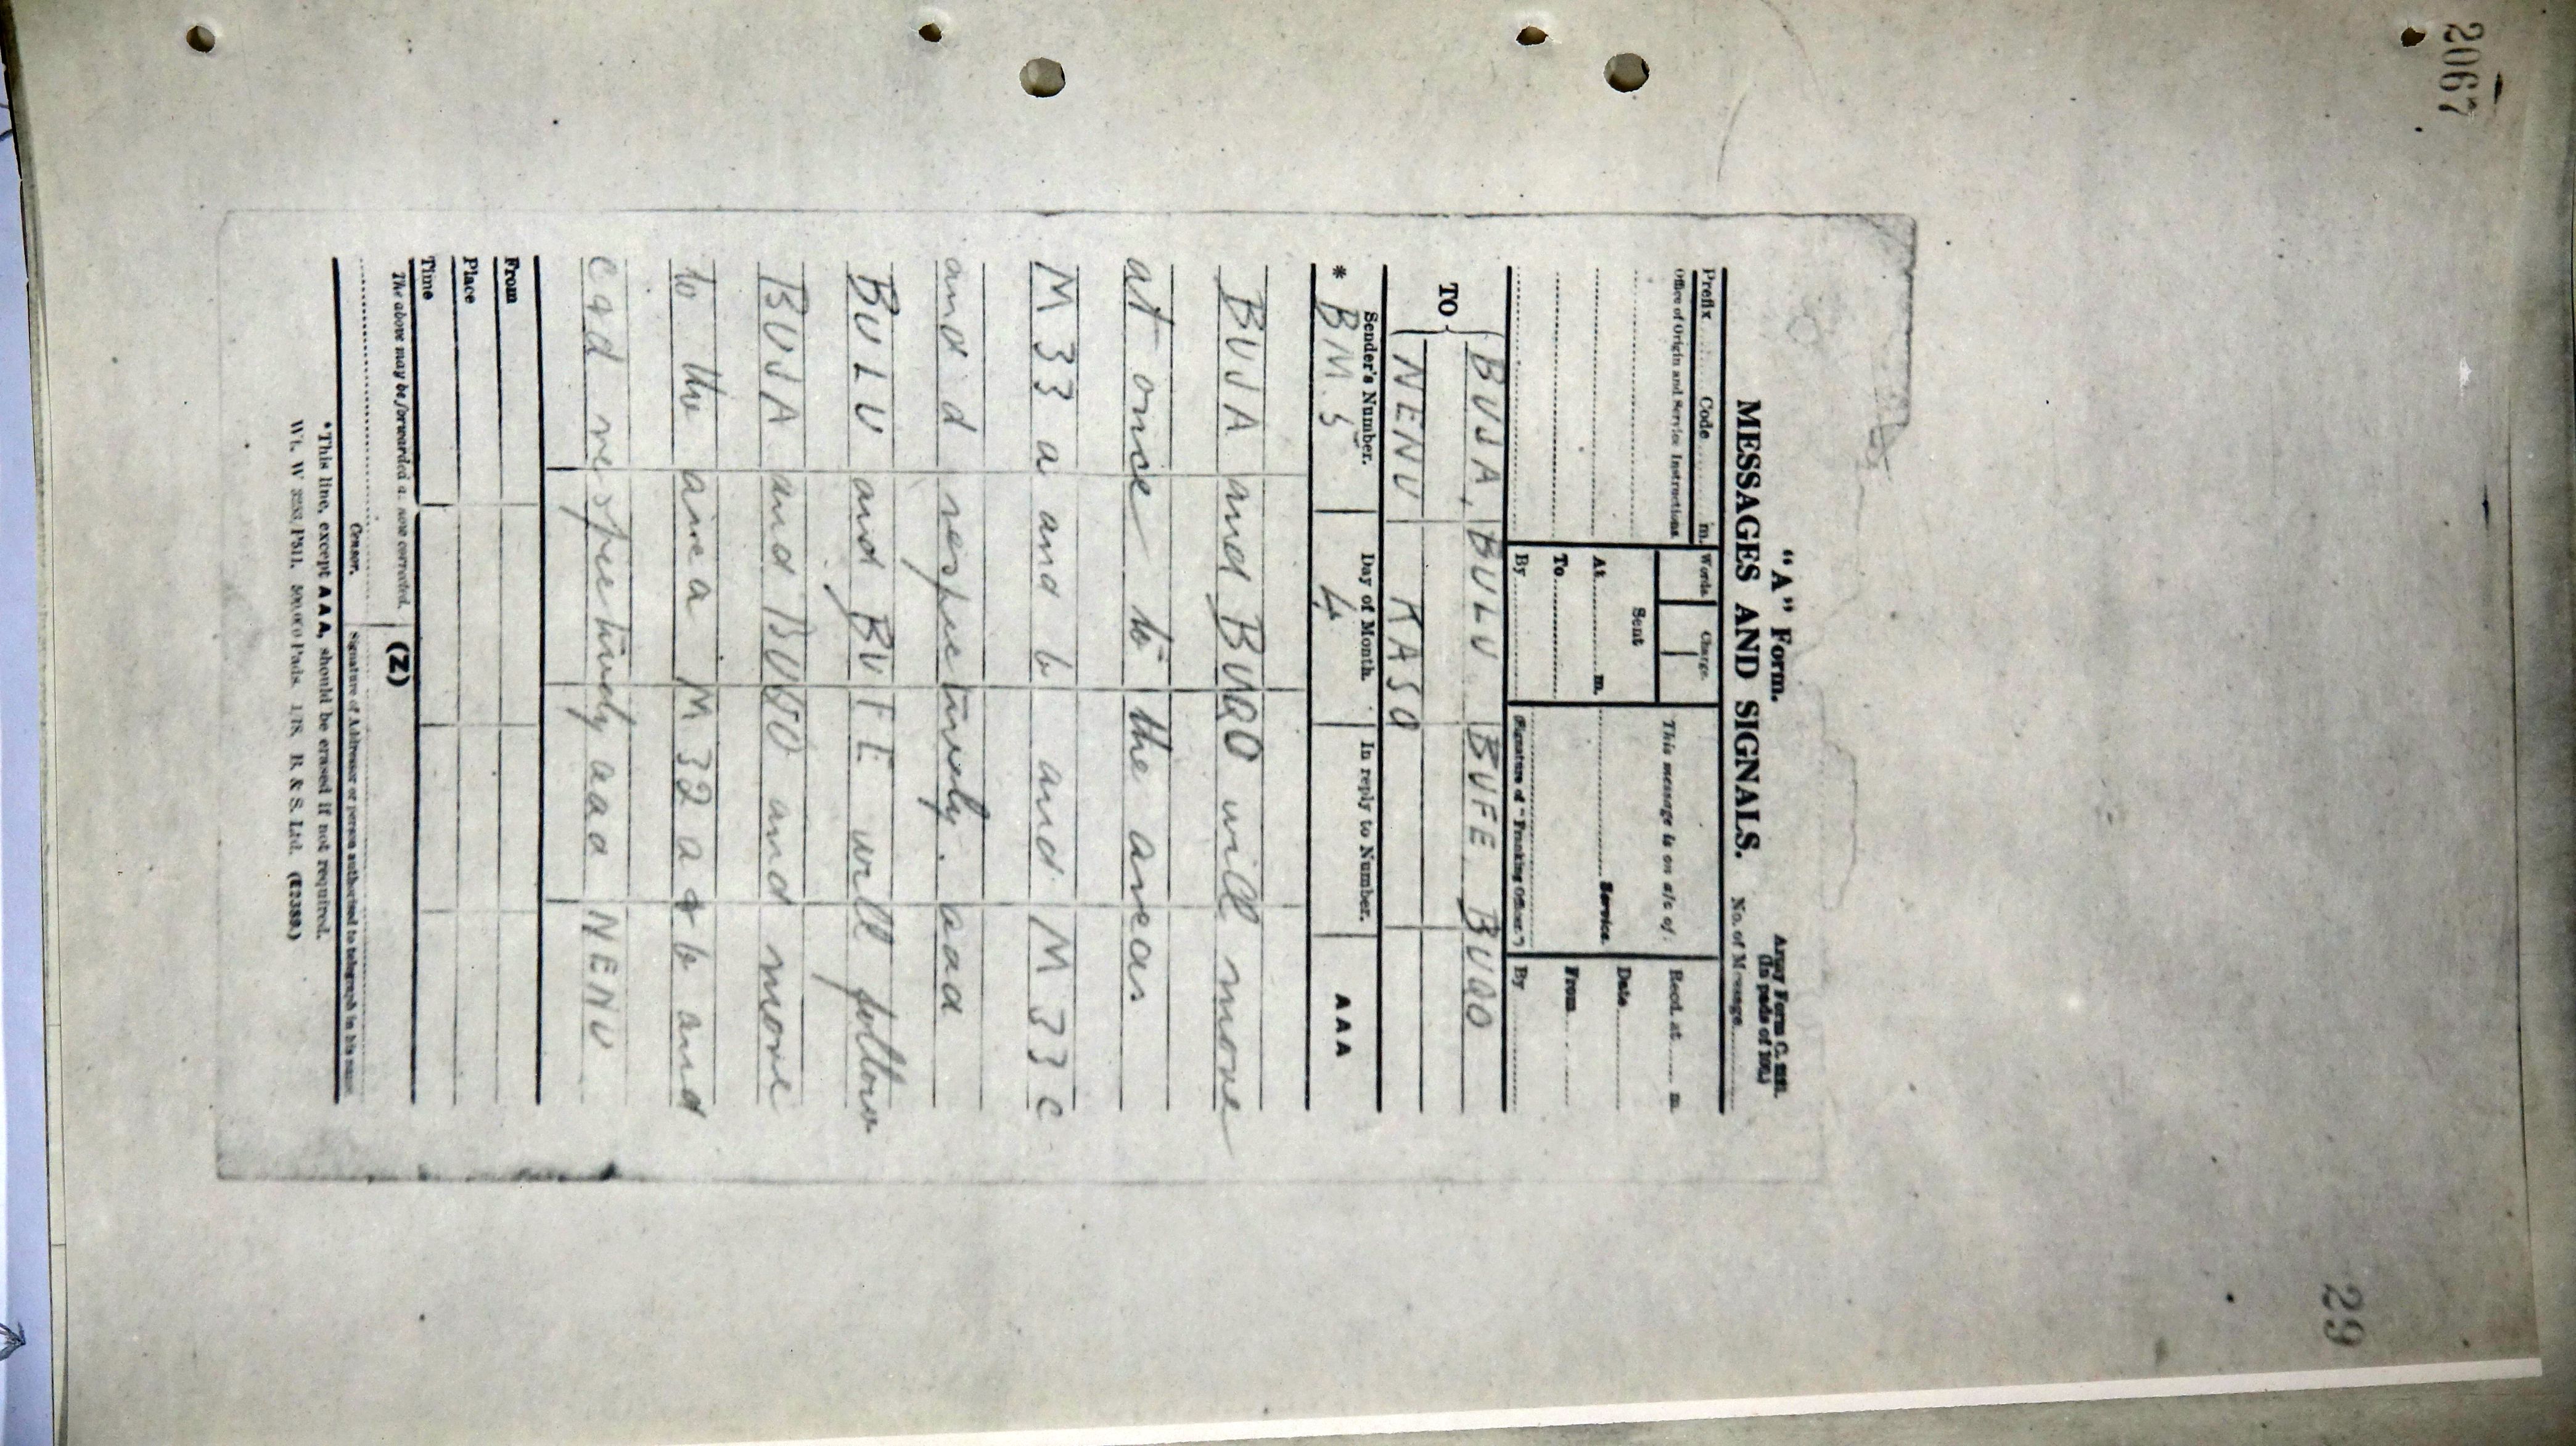 2067
29
"A" Form.
Army Form C. 2121.
(In pads of 100.)
MESSAGES AND SIGNALS.
No. of Message
Prefix Code m.
Words
Charge.
This message is on a/c of:
Recd. at m.
Office of Origin and Service Instructions
Sent
At m.
Service.
Date
To
From
By
(Signature of "Franking Officer.")
By
TO
BUJA, BULU BUFE BUQO
NENU KASO
Sender's Number.
Day of Month.
In reply to Number.
AAA
* BM.5
4
BUJA and BUQO will move
at once to the areas
M 33 a and b and M 33 c
and d respectively. aaa
BULU and BUFE will follow
BUJA and BUQO and move
to the area M 32 a & b and
c & d respectively aaa NENU
From
Place
Time
The above may be forwarded as now corrected.
(Z)
Censor.
Signature of Addressor or person authorised to telegraph in his name
*This line, except AAA, should be erased if not required.
Wt. W 3253/P511. 500,000 Pads. 1/18. B. & S. Ltd. (E2389.)